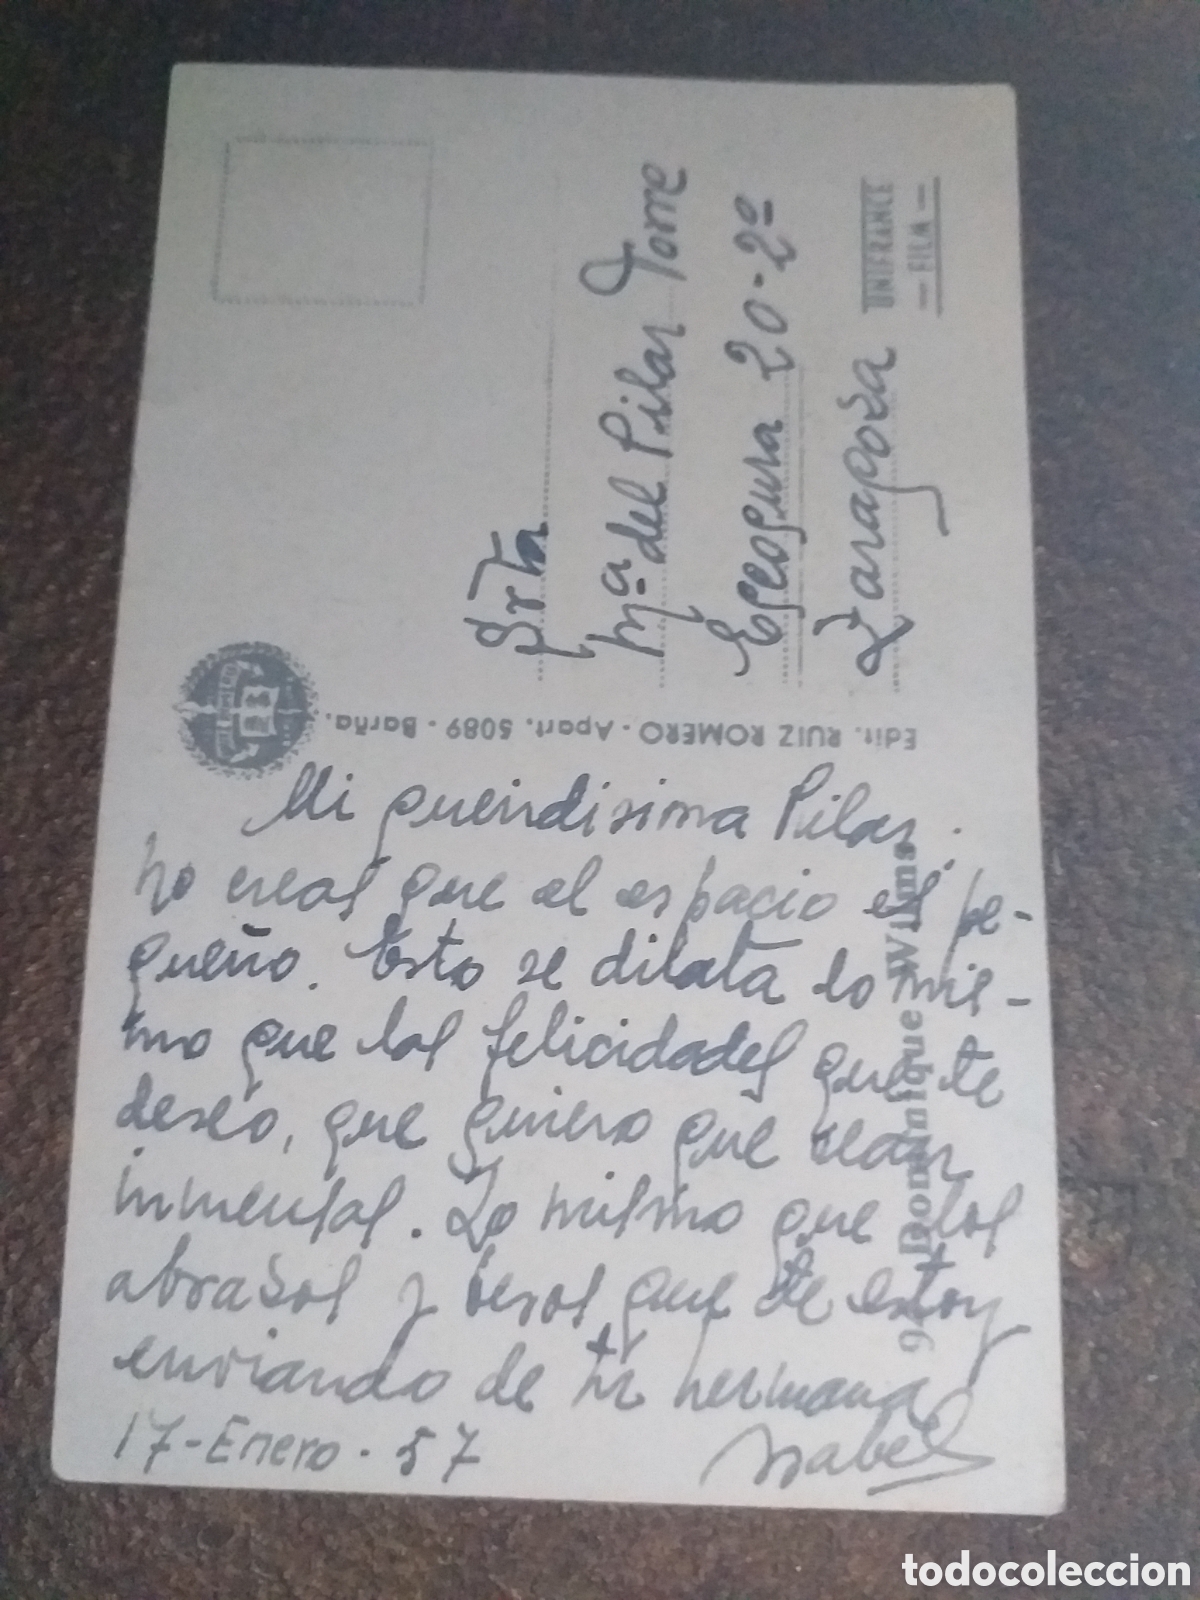 Srta
Mª del Pilar Torre
Escosura 20-2º
Zaragoza
UNIFRANCE
— FILM —
Edit. RUIZ ROMERO - Apart. 5089 - Barña.
94 Dominique Wilms
Mi queridisima Pilar.
no creas que el espacio es pe-
queño. Esto se dilata lo mis-
mo que las felicidades que te
deseo, que quiero que sean
inmensas. Lo mismo que los
abrazos y besos que te estoy
enviando de tu hermana
Isabel
17-Enero-57
todocoleccion